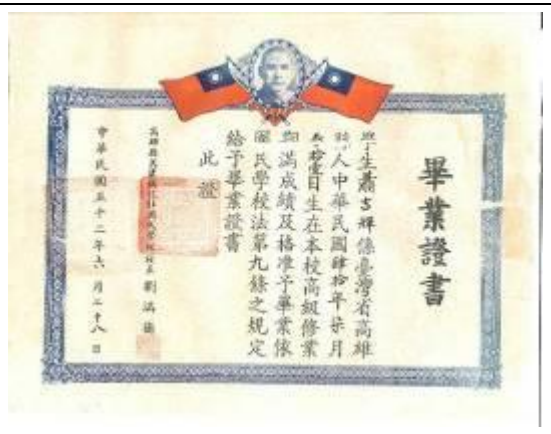 畢業證書
學生蕭吉輝係臺灣省高雄
縣人中華民國肆拾年柒月
拾壹日生在本校高級修業
期滿成績及格准予畢業依
國民學校法第九條之規定
給予畢業證書
此證
高雄縣
校長劉
中華民國五十二年六月二十八日